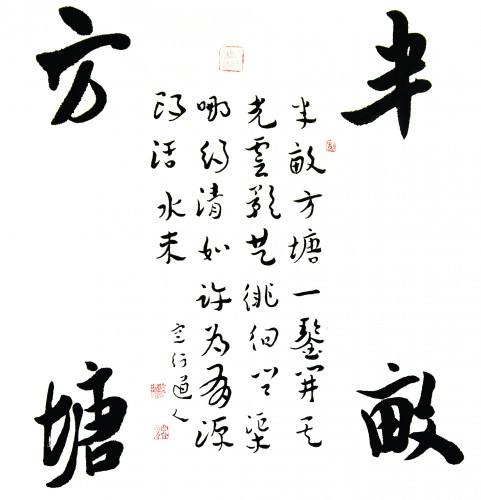 半畝
方塘
半畝方塘一鑿開天
光雲影共徘徊問渠
哪得清如許為有源
頭活水来
空行道人